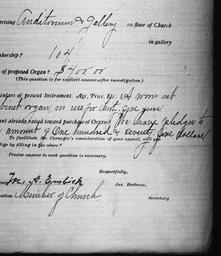 rising Auditorium & Gallery on floor of Church
in gallery
mbership? 104
of proposed Organ? $400.00
(This question is for explicit answer after investigation.)
culars of present Instrument. Age, Price, Etc. (A worn out
binet organ, in use for
nt already raised toward purchase of Organ? We have pledges to
amount of One hundred & seventy five dollars
To facilitate Mr. Carnegie's consideration of your appeal, will you
ige by filling in the above?
Precise answer to each question is necessary.
Respectfully,
Jas. Bertram,
Secretary
ition Member of Church